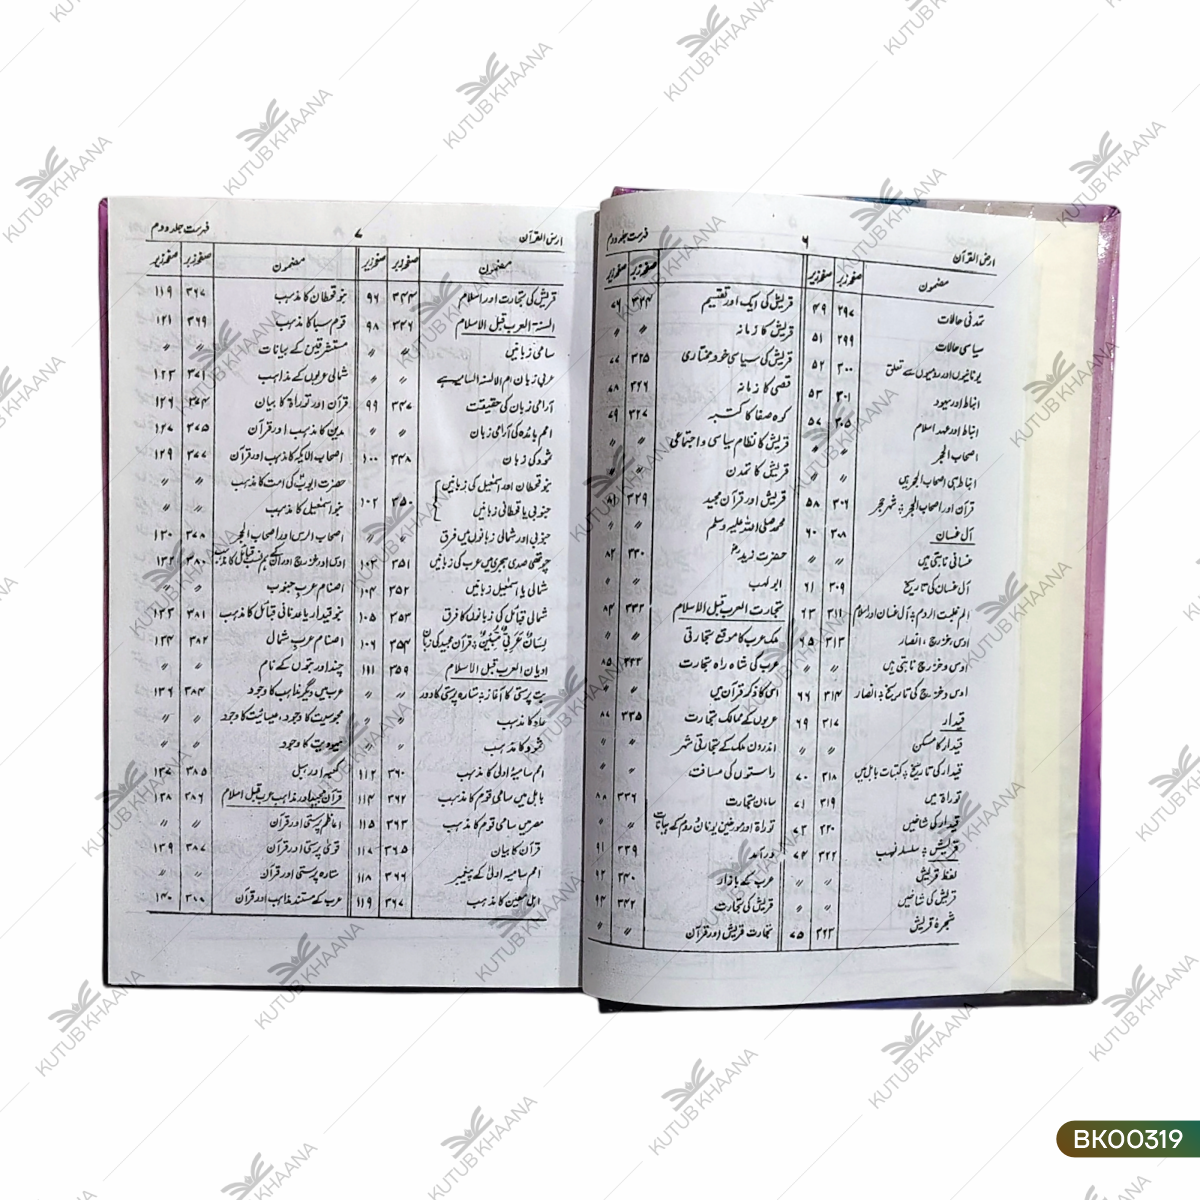 ارض القرآن ۶ فہرست جلد دوم
مضمون صفحہ زبر صفحہ زیر
تمدنی حالات ۲۹۷ ۴۹
سیاسی حالات ۲۹۹ ۵۱
یونانیوں اور رومیوں سے تعلق ۳۰۰ ۵۲
انباط اور یہود ۳۰۱ ۵۳
انباط اور عہد اسلام ۳۰۵ ۵۷
اصحاب الحجر 〃 〃
انباط ہی اصحاب الحجر ہیں 〃 〃
قرآن اور اصحاب الحجر، شہر حجر ۳۰۶ ۵۸
آل غسان ۳۰۸ ۶۰
غسانی نابتی ہیں 〃 〃
آل غسان کی تاریخ ۳۰۹ ۶۱
الم غلبت الروم، آل غسان اور اسلام ۳۱۱ ۶۳
اوس، خزرج، انصار ۳۱۳ ۶۵
اوس و خزرج نابتی ہیں 〃 〃
اوس و خزرج کی تاریخ، انصار ۳۱۴ ۶۶
قیدار ۳۱۷ ۶۹
قیدار کا مسکن 〃 〃
قیدار کی تاریخ، کتبات بابل میں ۳۱۸ ۷۰
توراۃ میں ۳۱۹ ۷۱
قیدار کی شاخیں ۳۲۰ ۷۲
قریش، سلسلہ نسب ۳۲۲ ۷۴
لفظ قریش 〃 〃
قریش کی شاخیں 〃 〃
شجرۂ قریش ۳۲۳ ۷۵
مضمون صفحہ زبر صفحہ زیر
قریش کی ایک اور تقسیم ۳۲۴ ۷۶
قریش کا زمانہ 〃 〃
قریش کی سیاسی خود مختاری ۳۲۵ ۷۷
قصی کا زمانہ ۳۲۶ ۷۸
کوہ صفا کا کتبہ ۳۲۷ ۷۹
قریش کا نظام سیاسی و اجتماعی 〃 〃
قریش کا تمدن 〃 〃
قریش اور قرآن مجید ۳۲۹ ۸۱
محمد صلی اللہ علیہ وسلم 〃 〃
حضرت زیدؓ ۳۳۰ ۸۲
ابو لہب 〃 〃
تجارت العرب قبل الاسلام ۳۳۲ ۸۴
ملک عرب کا موقع تجارتی 〃 〃
عرب کی شاہ راہ تجارت ۳۳۳ ۸۵
اسی کا ذکر قرآن میں 〃 〃
عربوں کے ممالک تجارت ۳۳۵ ۸۷
اندرون ملک کے تجارتی شہر 〃 〃
راستوں کی مسافت 〃 〃
سامان تجارت ۳۳۶ ۸۸
توراۃ اور مورخین یونان و روم کے بیانات 〃 〃
درآمد ۳۳۹ ۹۱
عرب کے بازار ۳۴۰ ۹۲
قریش کی تجارت ۳۴۲ ۹۴
تجارت قریش اور قرآن 〃 〃
ارض القرآن ۷ فہرست جلد دوم
مضمون صفحہ زبر صفحہ زیر
قریش کی تجارت اور اسلام ۳۴۴ ۹۶
السنۃ العرب قبل الاسلام ۳۴۶ ۹۸
سامی زبانیں 〃 〃
عربی زبان ام الالسنہ السامیہ ہے 〃 〃
آرامی زبان کی حقیقت ۳۴۷ ۹۹
امم بائدہ کی آرامی زبان 〃 〃
ثمود کی زبان ۳۴۸ ۱۰۰
بنو قحطان اور اسمٰعیل کی زبانیں
جنوبی یا قحطانی زبانیں ۳۵۰ ۱۰۲
جنوبی اور شمالی زبانوں میں فرق 〃 〃
چوتھی صدی ہجری میں عرب کی زبانیں ۳۵۱ ۱۰۳
شمالی یا اسمٰعیل زبانیں ۳۵۲ ۱۰۴
شمالی قبائل کی زبانوں کا فرق ۳۵۳ ۱۰۵
لِسَانٌ عَرَبِیٌّ مُّبِیْنٌ، قرآن مجید کی زبان ۳۵۴ ۱۰۶
ادیان العرب قبل الاسلام ۳۵۹ ۱۱۱
بت پرستی کا آغاز، ستارہ پرستی کا دور 〃 〃
عاد کا مذہب 〃 〃
ثمود کا مذہب 〃 〃
امم سامیۂ اولیٰ کا مذہب ۳۶۰ ۱۱۲
بابل میں سامی قوم کا مذہب ۳۶۲ ۱۱۴
مصر میں سامی قوم کا مذہب ۳۶۳ ۱۱۵
قرآن کا بیان ۳۶۵ ۱۱۷
امم سامیہ اولیٰ کے پیغمبر ۳۶۶ ۱۱۸
اہل معین کا مذہب ۳۶۷ ۱۱۹
مضمون صفحہ زبر صفحہ زیر
بنو قحطان کا مذہب ۳۶۷ ۱۱۹
قوم سبا کا مذہب ۳۶۹ ۱۲۱
مستشرقین کے بیانات 〃 〃
شمالی عربوں کے مذاہب ۳۷۱ ۱۲۳
قرآن اور توراۃ کا بیان ۳۷۴ ۱۲۶
مدین کا مذہب اور قرآن ۳۷۵ ۱۲۷
اصحاب الایکہ کا مذہب اور قرآن ۳۷۷ ۱۲۹
حضرت ایوبؑ کی امت کا مذہب 〃 〃
بنو اسمٰعیل کا مذہب 〃 〃
اصحاب الرس اور اصحاب الحجر ۳۷۸ ۱۳۰
اوس اور خزرج اور ان کے ہم نسب قبائل کا مذہب ۳۸۰ ۱۳۲
اصنام عرب جنوب 〃 〃
بنو قیدار یا عدنانی قبائل کا مذہب ۳۸۱ ۱۳۳
اصنام عرب شمال ۳۸۲ ۱۳۴
چند اور بتوں کے نام 〃 〃
عرب میں دیگر مذاہب کا وجود ۳۸۴ ۱۳۶
مجوسیت کا وجود، عیسائیت کا وجود 〃 〃
یہودیت کا وجود 〃 〃
کعبہ اور ہبل ۳۸۵ ۱۳۷
قرآن مجید اور مذاہب عرب قبل اسلام ۳۸۶ ۱۳۸
اعاظم پرستی اور قرآن 〃 〃
قویٰ پرستی اور قرآن ۳۸۷ ۱۳۹
ستارہ پرستی اور قرآن 〃 〃
عرب کے مستند مذاہب اور قرآن ۳۸۸ ۱۴۰
KUTUB KHAANA
BK00319